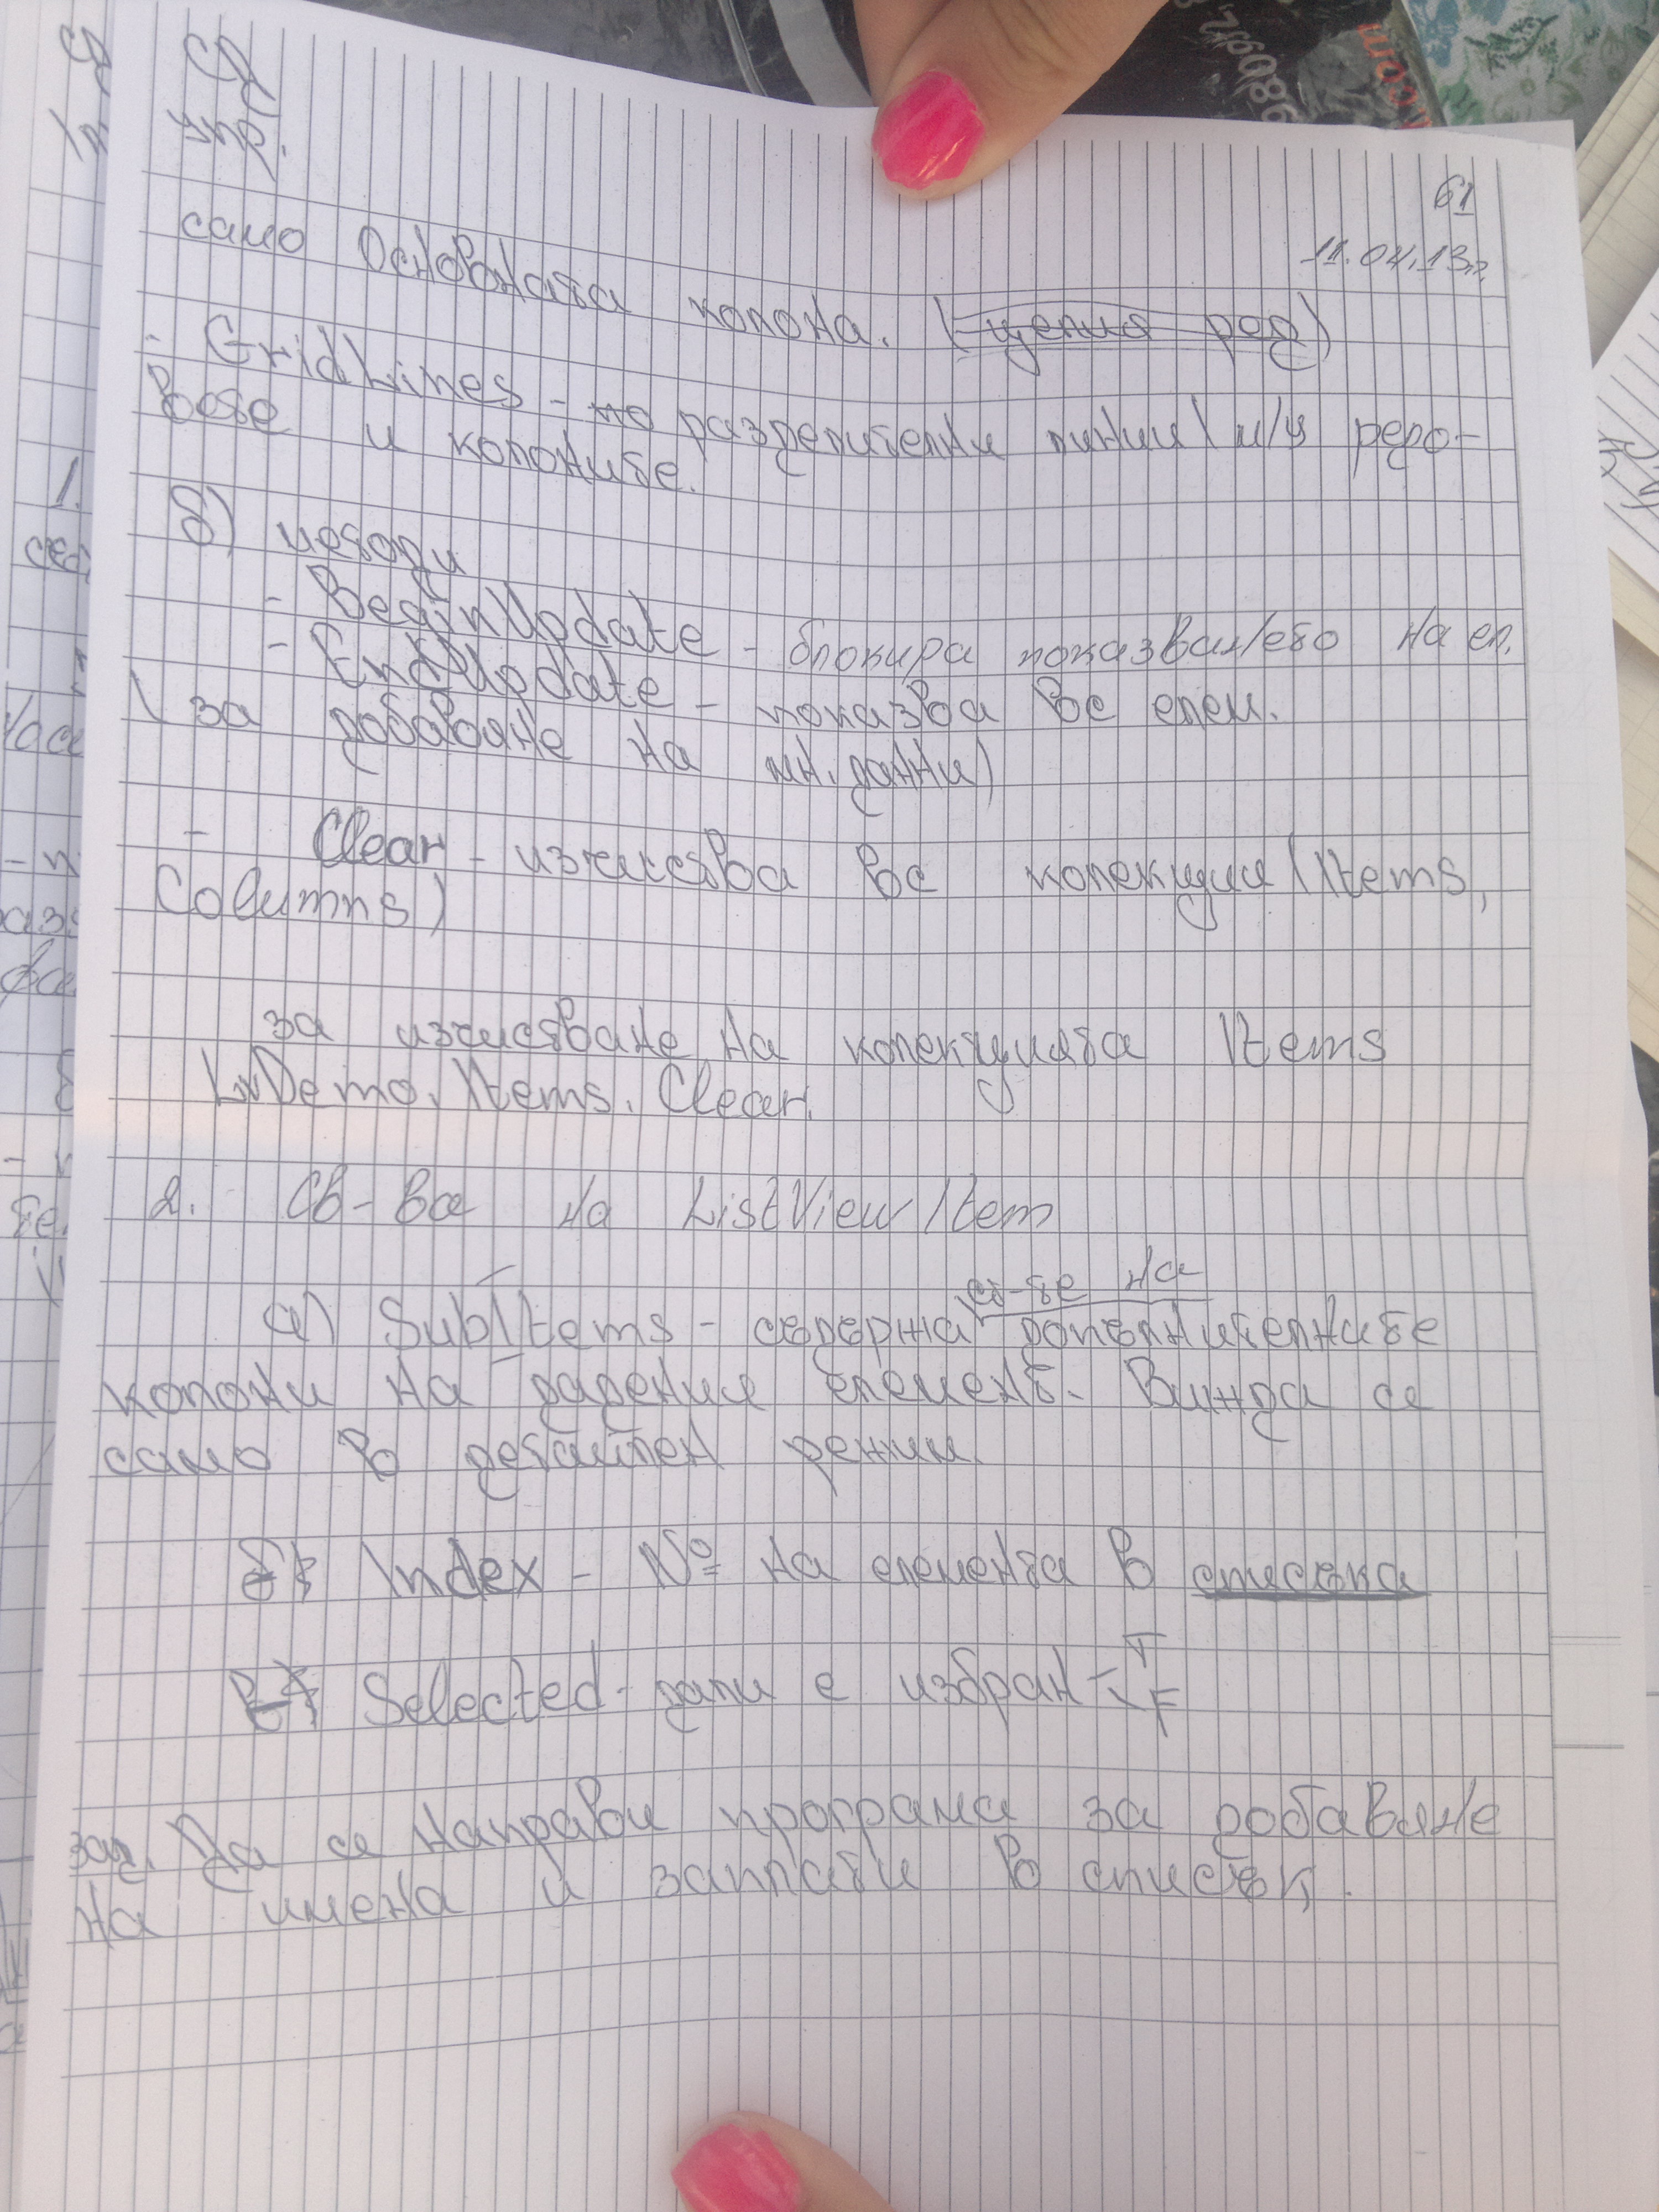 СД
упр.
61
11.04.13г.
само Основната колона. (целия ред)
- GridLines - разделителни линии м/у редо-
вете и колоните.
б) методи
- BeginUpdate - блокира показването на ел.
- EndUpdate - показва вс елем.
(за добавяне на мн. данни)
- Clear - изчиства вс колекции (Items,
Columns)
за изчистване на колекцията Items
LvDemo.Items.Clear.
2. Св-ва на ListViewItem
ст-те на
а) SubItems - съдържа допълнителните
колони на дадения елемент. Вижда се
само в детайлен режим.
б) Index - № на елемента в списъка
в) Selected - дали е избран - T
F
зад. Да се направи програма за добавяне
на имена и заплати в списък.
980912
.com